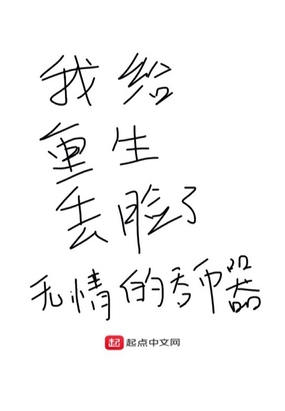 我给
重生
丢脸了
无情的香币器
起 起点中文网